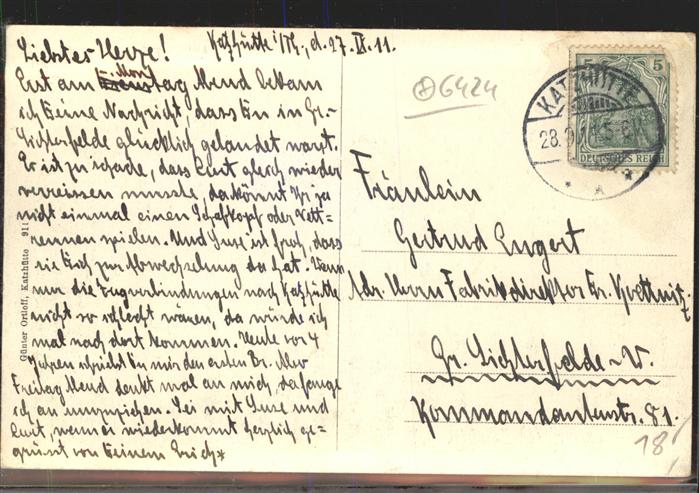 Katzhütte i/Th., d. 27. IX. 11.
Liebstes Herze!
Erst am Montag Abend bekam
ich Deine Nachricht, dass Du in Gr.-
Lichterfelde glücklich gelandet warst.
Es ist zu schade, dass Curt gleich wieder
verreissen musste, da könnt Ihr ja
nicht einmal einen Schafkopf oder Wett=
rennen spielen. Und Suse ist froh, dass
sie Dich zur Abwechselung da hat. Wenn
nur die Zugverbindungen nach Katzhütte
nicht so schlecht wären, da würde ich
mal nach dort kommen. Heute vor 4
Jahren schriebst Du mir den ersten Br. Also
Freitag Abend denkt mal an mich, da fange
ich an umzuziehen. Sei mit Suse und
Curt, wenn er wiederkommt herzlich ge=
grüsst von Deinem Erich*
Günter Ortloff, Katzhütte 911
6424
5 5
DEUTSCHES REICH
KATZHÜTTE
28.9.11.5-6
Fräulein
Gertrud Engert
Adr. Herrn Fabrikdirektor Dr.
Gr. Lichterfelde-W.
Kommandantenstr. 81.
18